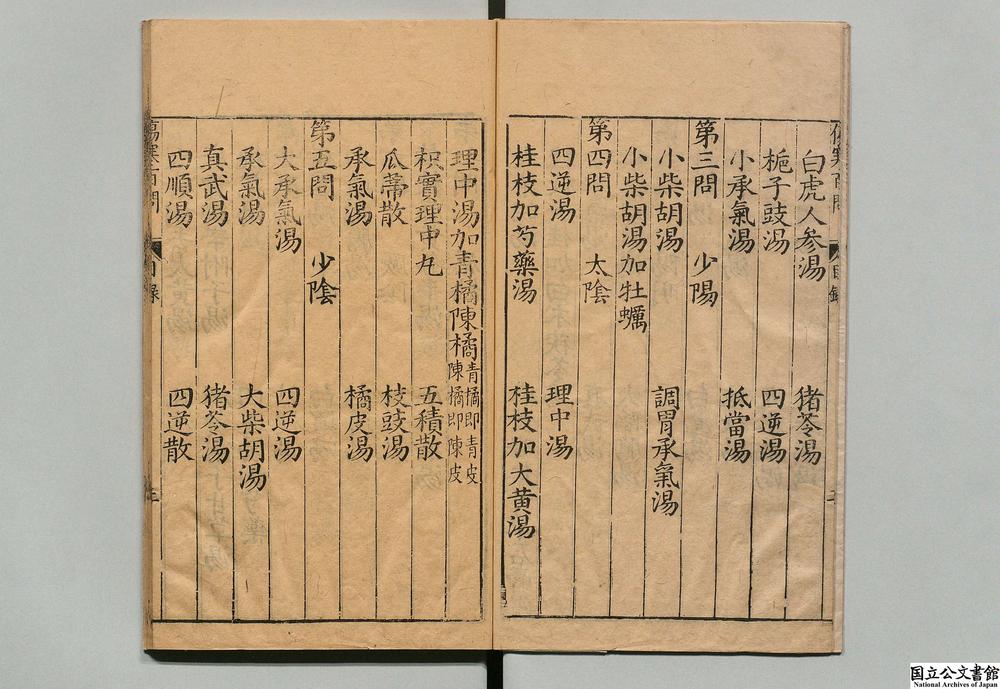 白虎人參湯 猪苓湯
梔子豉湯 四逆湯
小承氣湯 抵當湯
第三問 少陽
小柴胡湯 調胃承氣湯
小柴胡湯加牡蠣
第四問 太陰
四逆湯 理中湯
桂枝加芍藥湯 桂枝加大黃湯
理中湯加青橘陳橘 青橘即青皮 陳橘即陳皮
枳實理中丸 五積散
瓜蒂散 枝豉湯
承氣湯 橘皮湯
第五問 少陰
大承氣湯 四逆湯
承氣湯 大柴胡湯
真武湯 猪苓湯
四順湯 四逆散
傷寒百問 目録 三
国立公文書館
National Archives of Japan